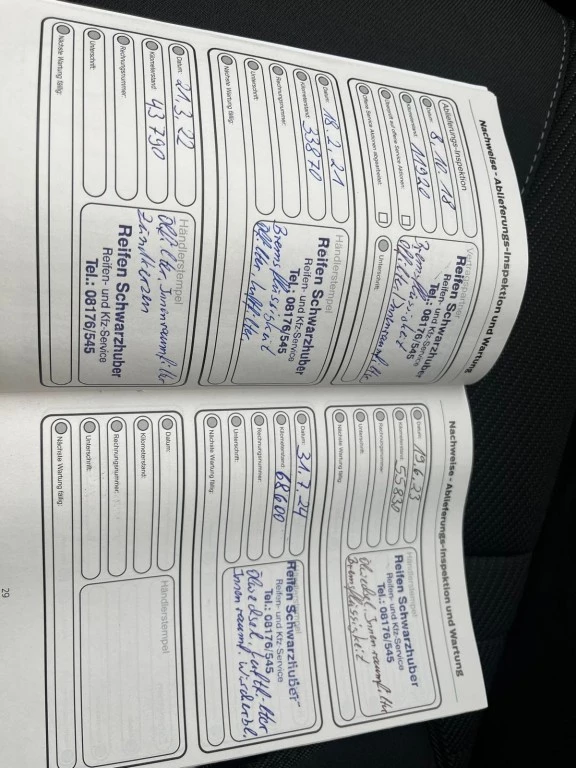 Nachweise - Ablieferungs-Inspektion und Wartung
Ablieferungs-Inspektion
Datum: 8.10.18
Kilometerstand: 11930
Unterschrift:
Vertragspartner
Reifen Schwarzhuber
Reifen- und Kfz-Service
Tel.: 08176/545
Bremsflüssigkeit
Ölfilter, Innenraumfilter
Datum: 18.2.21
Kilometerstand: 33870
Rechnungsnummer:
Unterschrift:
Nächste Wartung fällig:
Händlerstempel
Reifen Schwarzhuber
Reifen- und Kfz-Service
Tel.: 08176/545
Bremsflüssigkeit
Ölfilter Luftfilter
Datum: 21.3.22
Kilometerstand: 43790
Rechnungsnummer:
Unterschrift:
Nächste Wartung fällig:
Händlerstempel
Reifen Schwarzhuber
Reifen- und Kfz-Service
Tel.: 08176/545
Ölfilter Innenraumfilter
Zündkerzen
Nachweise - Ablieferungs-Inspektion und Wartung
Datum: 19.6.23
Kilometerstand: 55830
Rechnungsnummer:
Unterschrift:
Nächste Wartung fällig:
Händlerstempel
Reifen Schwarzhuber
Reifen- und Kfz-Service
Tel.: 08176/545
Innenraumfilter
Bremsflüssigkeit
Datum: 31.7.24
Kilometerstand: 68600
Rechnungsnummer:
Unterschrift:
Nächste Wartung fällig:
Reifen Schwarzhuber
Reifen- und Kfz-Service
Tel.: 08176/545
Ölwechsel, Luftfilter
Innenraumf. Wischerbl.
Datum:
Kilometerstand:
Rechnungsnummer:
Unterschrift:
Nächste Wartung fällig:
Händlerstempel
29